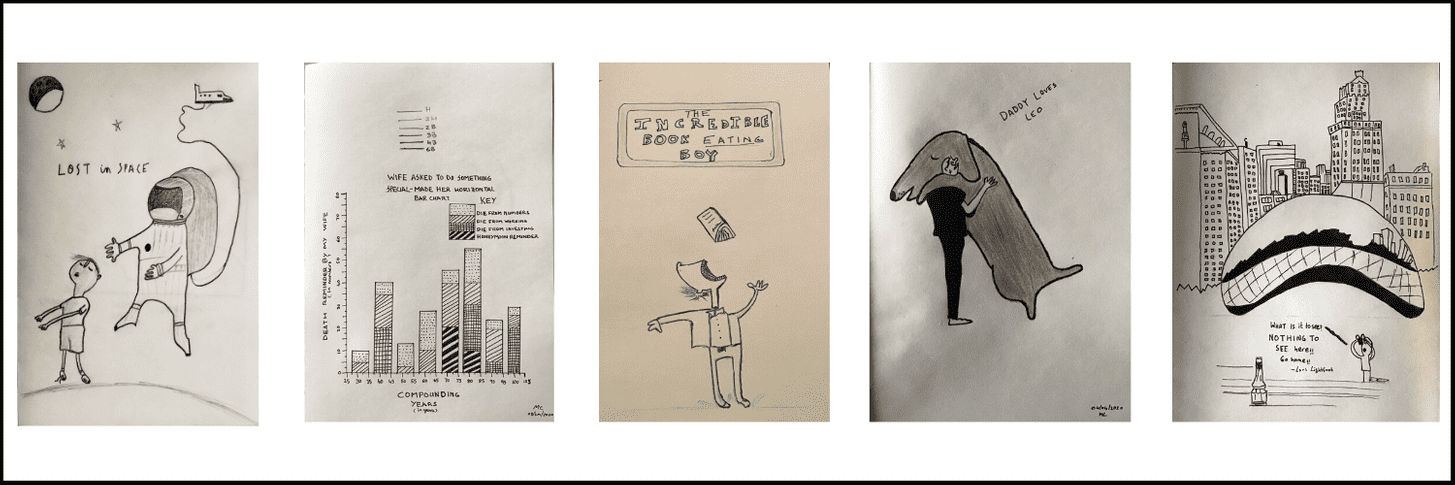 LOST in SPACE
H
2H
2B
3B
4B
6B
WIFE ASKED TO DO SOMETHING
SPECIAL-MADE HER HORIZONTAL
BAR CHART
KEY
DIE FROM NUMBERS
DIE FROM WORKING
DIE FROM INVESTING
HONEYMOON REMINDER
DEATH REMINDER BY MY WIFE
(in numbers)
80
70
60
50
40
30
20
10
0
25 30 35 40 45 50 55 60 65 70 75 80 85 90 95 100 105
COMPOUNDING
YEARS
(in years)
MC
THE
INCREDIBLE
BOOK EATING
BOY
DADDY LOVES
LEO
MC
WHAT IS it to see?
NOTHING TO
SEE here!!
Go home!!